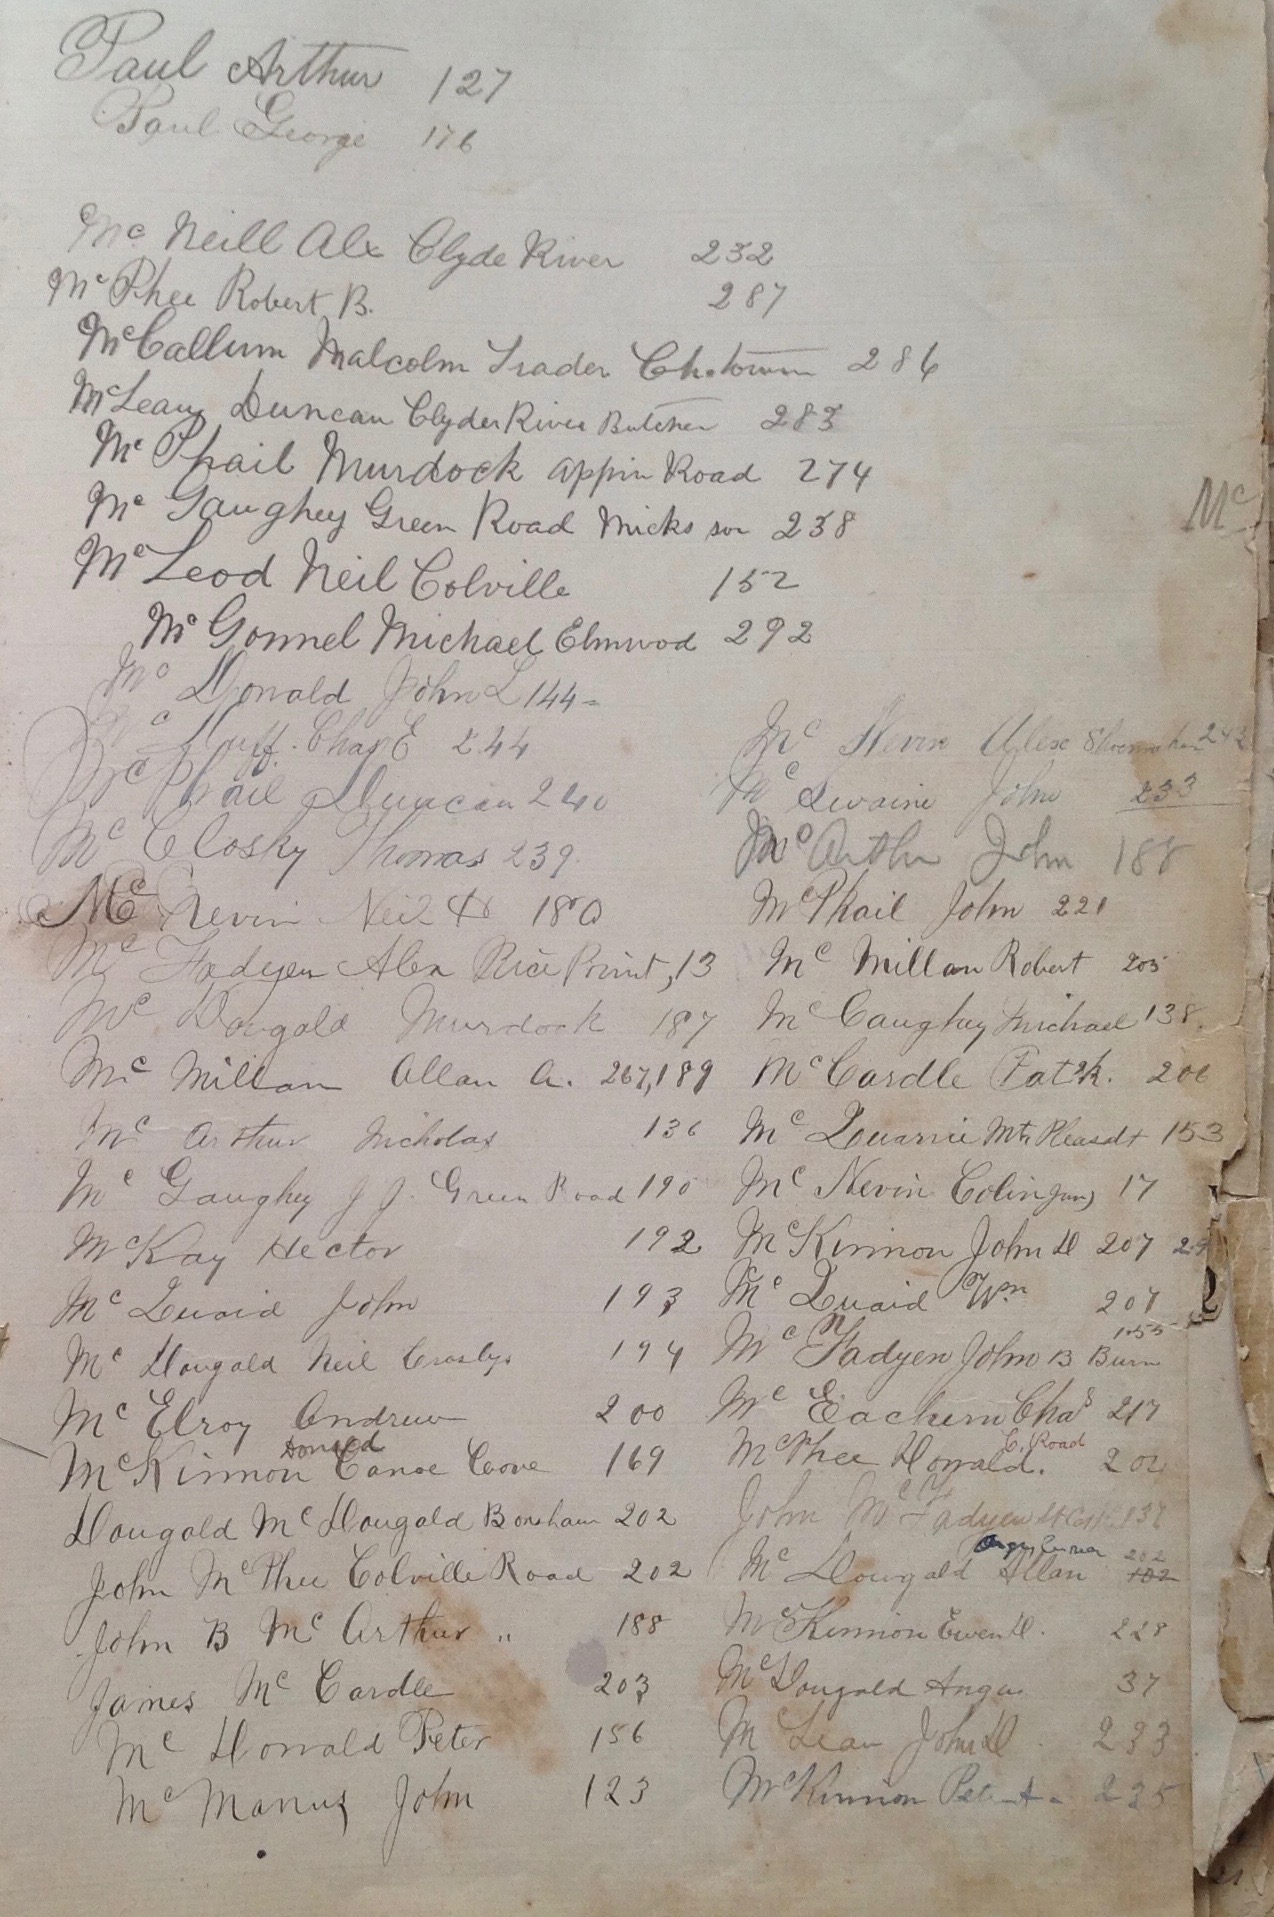 Paul Arthur 127
Paul George 176
Mc Neill Alex Clyde River 232
McPhee Robert B. 287
McCallum Malcolm Trader Chtown 286
McLean Duncan Clyde River Butcher 283
Mc Phail Murdock Appin Road 274
Mc Gaughey Green Road Micks son 238
McLeod Neil Colville 152
Mc Gonnel Michael Elmwod 292
Mc Donald John L 144
Mc Duff. Chas E 244
McPhail Duncan 240
Mc Closky Thomas 239.
Mc Nevin Neil 180
Mc Fadyen Alex Rice Point, 13
Mc Dougald Murdock 187
Mc Millan Allan A. 267, 189
Mc Arthur Nicholas 136
Mc Gaughey J J. Green Road 190
McKay Hector 192
Mc Quaid John 193
Mc Dougald Neil Crosbys 194
McElroy Andrew 200
Donald
McKinnon Canoe Cove 169
Dougald McDougald Bonshaw 202
John McPhee Colville Road 202
John B McArthur " 188
James McCardle 203
Mc Donald Peter 156
Mc Manus John 123
Mc Nevin Alex Shoemaker 242
Mc Swaine John 233
McArthur John 188
McPhail John 221
Mc Millan Robert 205
McCaughey Michael 138.
McCardle Patk. 206
Mc Quarrie Mt Pleasdt 153
Mc Nevin Colin Junr 17
McKinnon John D 207
Mc Quaid Wm 207
155
Mc Fadyen John B Burn
Mc Eachern Chas 217
C. Road
McPhee Donald. 204
John McFadyen 137
Angus 202
McDougald Allan 102
McKinnon Ewen D. 228
McDougald Angus 37
McLean John D 233
McKinnon Peter A 235
Mc